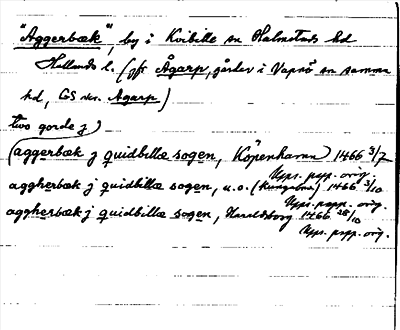 "Aggerbæk", by i Kvibille sn Halmstads hd
Hallands l. (jfr Ågarp, gårder i Vapnö sn samma
hd, GS skr. Agarp)
two gorde j)
(aggerbæk j quidbillæ sogen, Köpenhamn) 1466 3/7
Upps. papp. orig.
aggherbæk j quidbillæ sogen, u.o. (Kungabrev) 1466 3/10
Upps. papp. orig.
aggherbæk j quidbillæ sogen, Haraldsborg 1466 28/10
Upps. papp. orig.